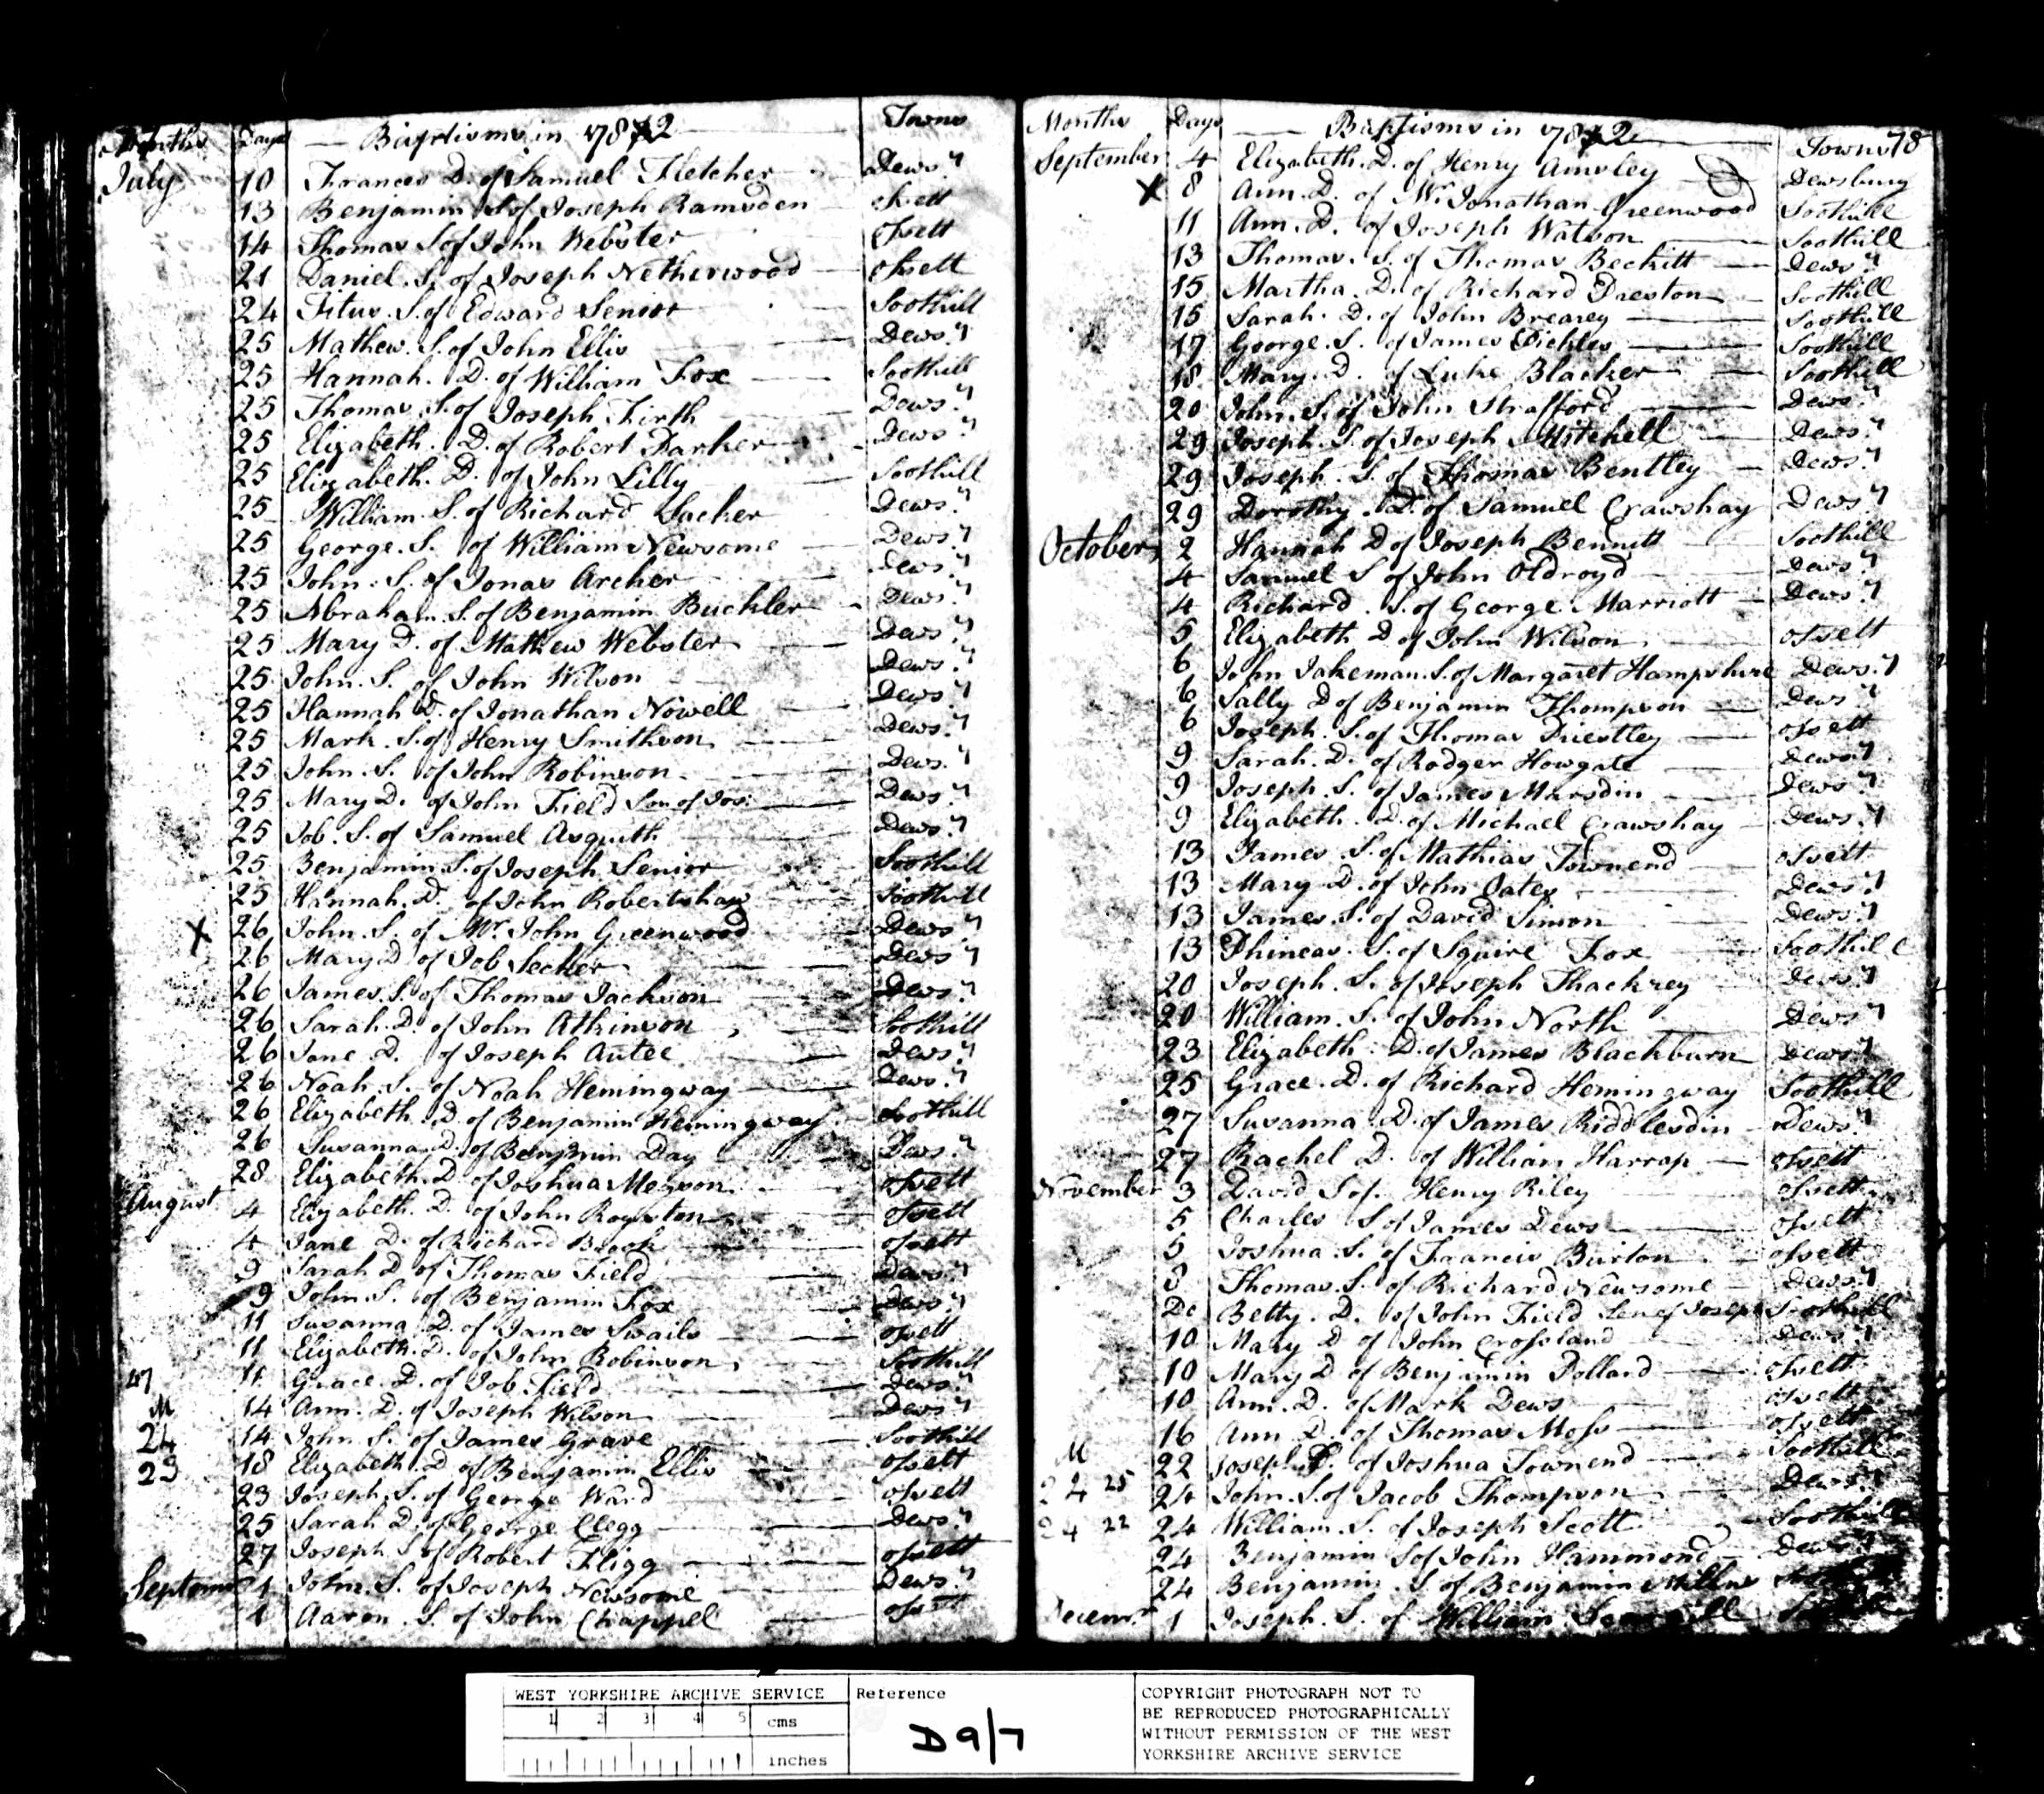 Months Days Baptisms in 1782 Towns
July 10 Frances D. of Samuel Fletcher Dews.y
13 Benjamin S of Joseph Ramsden Ossett
14 Thomas S of John Webster Ossett
21 Daniel. S. of Joseph Netherwood Ossett
24 Titus. S. of Edward Senior Soothill
25 Mathew. S. of John Ellis Dews.y
25 Hannah. D. of William Fox Soothill
25 Thomas. S. of Joseph Firth Dews.y
25 Elizabeth. D. of Robert Parker Dews.y
25 Elizabeth. D. of John Lilly Soothill
25 William. S. of Richard Secker Dews.y
25 George. S. of William Newsome Dews.y
25 John. S. of Jonas Archer Dews.y
25 Abraham. S. of Benjamin Buckler Dews.y
25 Mary D. of Mathew Webster Dews.y
25 John. S. of John Wilson Dews.y
25 Hannah D. of Jonathan Nowell Dews.y
25 Mark. S. of Henry Smithson Dews.y
25 John. S. of John Robinson Dews.y
25 Mary D. of John Field Son of Jos: Dews.y
25 Job. S. of Samuel Asquith Dews.y
25 Benjamin S. of Joseph Senior Soothill
25 Hannah. D. of John Robertshaw Soothill
X 26 John. S. of Mr. John Greenwood Dews.y
26 Mary D of Job Secker Dews.y
26 James. S. of Thomas Jackson Dews.y
26 Sarah. D. of John Atkinson Soothill
26 Jane D. of Joseph Autee Dews.y
26 Noah. S. of Noah Hemingway Dews.y
26 Elizabeth. D. of Benjamin Hemingway Soothill
26 Susanna D. of Benjmin Day Dews.y
28 Elizabeth. D of Joshua Meson Ossett
August 4 Elizabeth. D. of John Royston Ossett
4 Jane D. of Richard Brook Ossett
9 Sarah D of Thomas Field Dews.y
9 John S. of Benjamin Fox Dews.y
11 Susanna. D. of James Swails Ossett
11 Elizabeth. D. of John Robinson Soothill
11 Grace. D. of Job Field Dews.y
M 14 Ann. D. of Joseph Wilson Dews.y
24 14 John S. of James Grave Soothill
23 18 Elizabeth. D of Benjamin Ellis Ossett
23 Joseph. S. of George Ward Ossett
25 Sarah D. of George Clegg Dews.y
27 Joseph S of Robert Fligg Ossett
Septem 1 John. S. of Joseph Newsome Dews.y
1 Aaron. S. of John Chappel Ossett
Months Days Baptisms in 1782 Towns 78
September 4 Elizabeth. D. of Henry Awvley Dewsbury
X 8 Ann. D. of Mr Jonathan Greenwood Soothill
11 Ann. D. of Joseph Watson Soothill
13 Thomas. S. of Thomas Beckitt Dews.y
15 Martha. D. of Richard Preston Soothill
15 Sarah. D. of John Brearey Soothill
17 George. S. of James Pickles Soothill
18 Mary. D. of Luke Blacker Soothill
20 John. S. of John Strafford Dews.y
29 Joseph. S. of Joseph Mitchell Dews.y
29 Joseph. S. of Thomas Bentley Dews.y
29 Dorothy. D. of Samuel Crawshay Dews.y
October 2 Hannah D of Joseph Bennett Soothill
4 Samuel S of John Oldroyd Dews.y
4 Richard. S. of George Marriott Dews.y
5 Elizabeth D of John Wilson Ossett
6 John Jakeman. S. of Margaret Hampshire Dews.y
6 Sally D of Benjamin Thompson Dews.y
6 Joseph. S. of Thomas Priestley Ossett
9 Sarah. D. of Rodger Howgate Dews.y
9 Joseph. S. of James Marsdin Dews.y
9 Elizabeth. D. of Michael Crawshay Dews.y
13 James S. of Mathias Townend Ossett
13 Mary D. of John Oates Dews.y
13 James. S. of David Simon Dews.y
13 Phineas. S. of Squire Fox Soothill
20 Joseph. S. of Joseph Thackrey Dews.y
20 William. S. of John North Dews.y
23 Elizabeth. D. of James Blackburn Dews.y
25 Grace. D. of Richard Hemingway Soothill
27 Susanna. D. of James Riddlesdin Dews.y
27 Rachel D. of William Harrap Ossett
November 3 David S of. Henry Riley Ossett
5 Charles S of James Dews Ossett
5 Joshua. S. of Francis Burton Ossett
8 Thomas. S. of Richard Newsome Dews.y
Do Betty. D. of John Field Son of Joseph Soothill
10 Mary D of John Crossland Dews.y
10 Mary D of Benjamin Pollard Ossett
10 Ann. D. of Mark Dews Ossett
16 Ann D. of Thomas Moss Ossett
M 22 Joseph of Joshua Townend Soothill
24 25 24 John. S. of Jacob Thompson Dews.y
24 22 24 William. S. of Joseph Scott Soothill
24 Benjamin S of John Hammond Dews.y
24 Benjamin. S of Benjamin
Decem.r 1 Joseph. S. of William
WEST YORKSHIRE ARCHIVE SERVICE
1 2 3 4 5 cms
inches
Reference
D9/7
COPYRIGHT PHOTOGRAPH NOT TO
BE REPRODUCED PHOTOGRAPHICALLY
WITHOUT PERMISSION OF THE WEST
YORKSHIRE ARCHIVE SERVICE